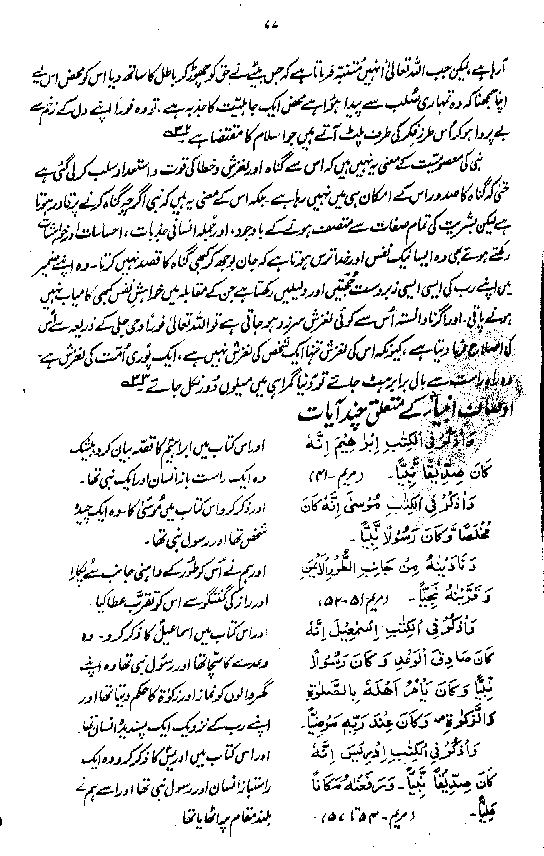 ۷۷
آ رہا ہے، لیکن جب اللہ تعالیٰ انہیں متنبہ فرماتا ہے کہ جس بیٹے نے حق کو چھوڑ کر باطل کا ساتھ دیا اس کو محض اس لیے
اپنا سمجھنا کہ وہ تمہاری صلب سے پیدا ہوا ہے محض ایک جاہلیت کا جذبہ ہے، تو وہ فوراً اپنے دل کے زخم سے
بے پروا ہو کر اُس طرزِ فکر کی طرف پلٹ آتے ہیں جو اسلام کا مقتضا ہے
نبی کی معصومیت کے معنی یہ نہیں ہیں کہ اس سے گناہ اور لغزش و خطا کی قوت و استعداد سلب کر لی گئی ہے
حتیٰ کہ گناہ کا صدور اس کے امکان ہی میں نہیں رہا ہے۔ بلکہ اس کے معنی یہ ہیں کہ نبی اگرچہ گناہ کرنے پر قادر ہوتا
ہے لیکن بشریت کی تمام صفات سے متصف ہونے کے باوجود، اور جملہ انسانی جذبات، احساسات اور خواہشات
رکھتے ہوئے بھی وہ ایسا نیک نفس اور خدا ترس ہوتا ہے کہ جان بوجھ کر کبھی گناہ کا قصد نہیں کرتا۔ وہ اپنے ضمیر
میں اپنے رب کی ایسی ایسی زبردست حجتیں اور دلیلیں رکھتا ہے جن کے مقابلہ میں خواہش نفس کبھی کامیاب نہیں
ہونے پاتی۔ اور اگر نادانستہ اُس سے کوئی لغزش سرزد ہو جاتی ہے تو اللہ تعالیٰ فوراً وحی جلی کے ذریعہ سے اُس
کی اصلاح فرما دیتا ہے، کیونکہ اس کی لغزش تنہا ایک شخص کی لغزش نہیں ہے، ایک پوری اُمت کی لغزش ہے۔
وہ راہ راست سے بال برابر ہٹ جائے تو دنیا گمراہی میں میلوں دُور نکل جائے
اوصافِ انبیاء کے متعلق چند آیات
وَاذْكُرْ فِي الْكِتٰبِ اِبْرٰهِيْمَ اِنَّهٗ
اور اس کتاب میں ابراہیم کا قصہ بیان کرو، بیشک
كَانَ صِدِّيْقًا نَّبِيًّا۔ (مریم۔ ۴۱)
وہ ایک راست باز انسان اور ایک نبی تھا۔
وَاذْكُرْ فِي الْكِتٰبِ مُوْسٰى اِنَّهٗ كَانَ
اور ذکر کرو اس کتاب میں موسیٰ کا۔ وہ ایک چیدہ
مُخْلَصًا وَّكَانَ رَسُوْلًا نَّبِيًّا۔
شخص تھا اور رسول نبی تھا۔
وَنَادَيْنٰهُ مِنْ جَانِبِ الطُّوْرِ الْاَيْمَنِ
اور ہم نے اُس کو طور کے داہنی جانب سے پکارا
وَقَرَّبْنٰهُ نَجِيًّا۔ (مریم ۵۱۔۵۲)
اور راز کی گفتگو سے اس کو تقرب عطا کیا۔
وَاذْكُرْ فِي الْكِتٰبِ اِسْمٰعِيْلَ اِنَّهٗ
اور اس کتاب میں اسماعیل کا ذکر کرو۔ وہ
كَانَ صَادِقَ الْوَعْدِ وَكَانَ رَسُوْلًا
وعدے کا سچا تھا اور رسول نبی تھا وہ اپنے
نَّبِيًّا وَكَانَ يَاْمُرُ اَهْلَهٗ بِالصَّلٰوةِ
گھر والوں کو نماز اور زکوٰۃ کا حکم دیتا تھا اور
وَالزَّكٰوةِ وَكَانَ عِنْدَ رَبِّهٖ مَرْضِيًّا۔
اپنے رب کے نزدیک ایک پسندیدہ انسان تھا۔
وَاذْكُرْ فِي الْكِتٰبِ اِدْرِيْسَ اِنَّهٗ
اور اس کتاب میں ادریس کا ذکر کرو وہ ایک
كَانَ صِدِّيْقًا نَّبِيًّا۔ وَّرَفَعْنٰهُ مَكَانًا
راستباز انسان اور رسول نبی تھا اور اسے ہم نے
عَلِيًّا۔ (مریم۔ ۵۴ تا ۵۷)
بلند مقام پر اٹھایا تھا